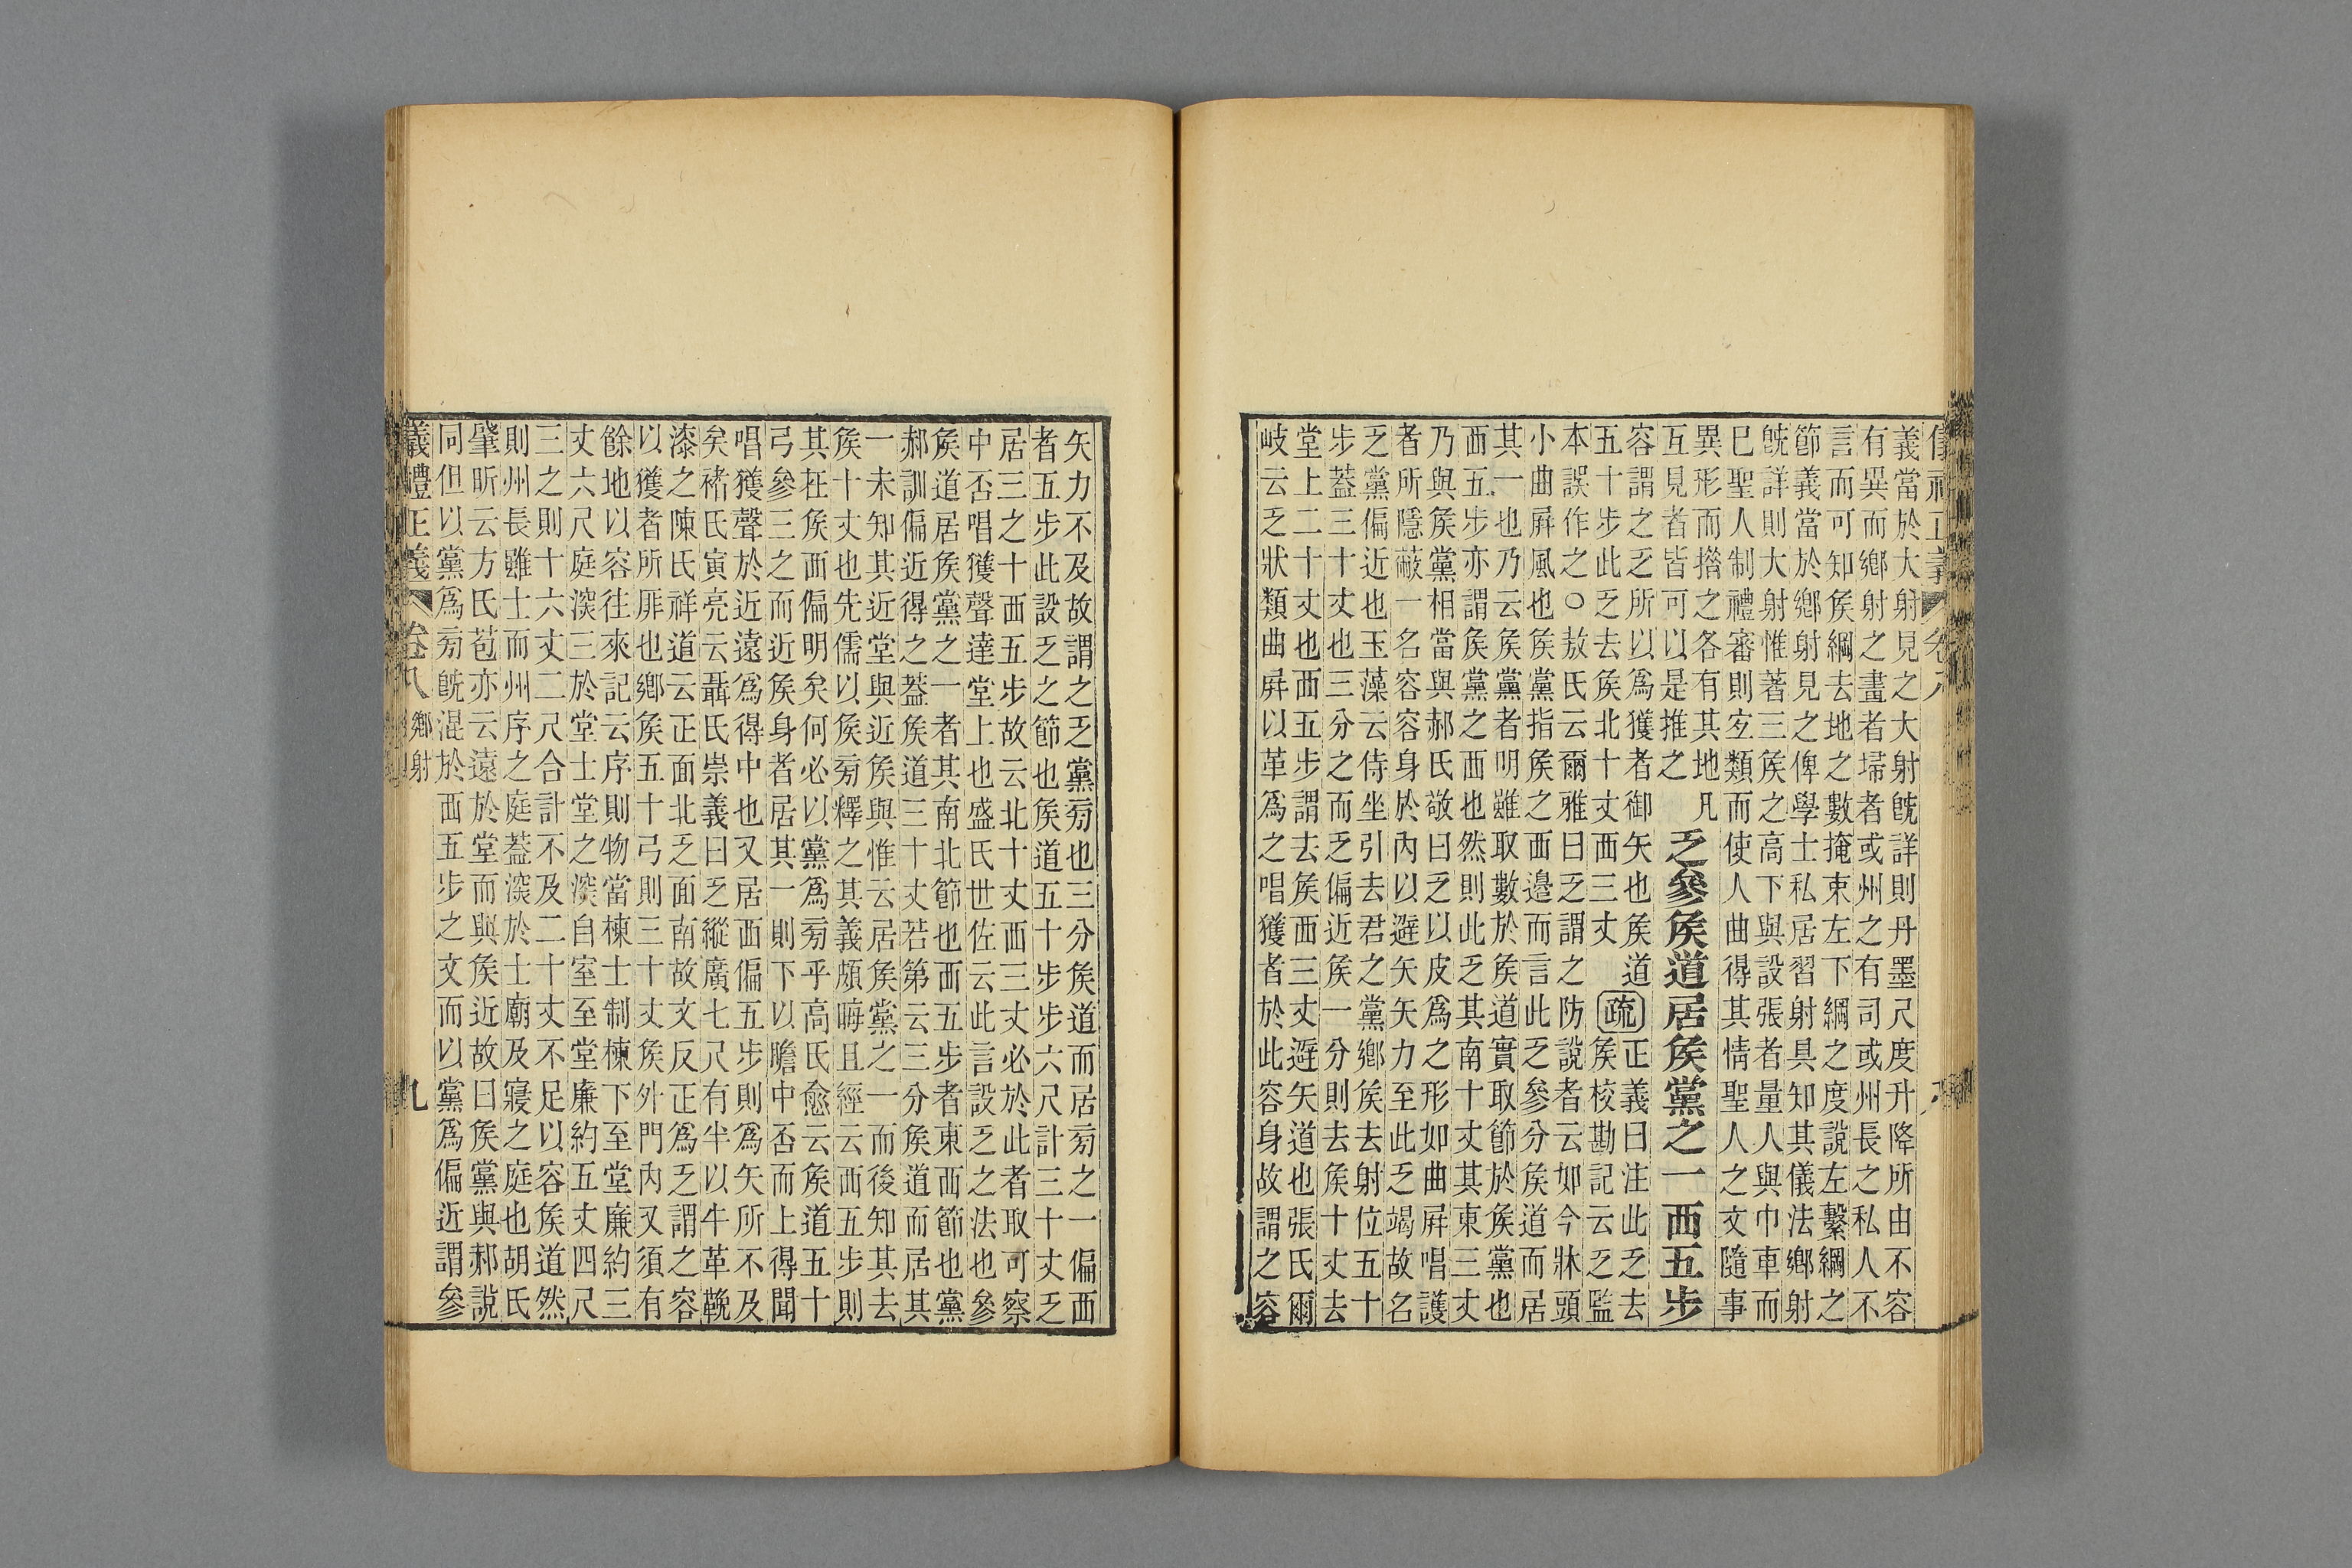 義當於大射見之大射旣詳則丹墨尺度升降所由不容
有異而鄉射之畫者埽者或州之有司或州長之私人不
言而可知矦綱去地之數掩束左下綱之度說左繫綱之
節義當於鄉射見之俾學士私居習射具知其儀法鄉射
旣詳則大射惟著三矦之高下與設張者量人與巾車而
巳聖人制禮審則㝎類而使人曲得其情聖人之文隨事
異形而撍之各有其地凡
互見者皆可以是推之
乏參矦道居矦黨之一西五步
容謂之乏所以爲獲者御矢也矦道
五十步此乏去矦北十丈西三丈
疏
正義曰注此乏去
矦校勘記云乏監
本誤作之○敖氏云爾雅曰乏謂之防說者云如今牀頭
小曲屛風也矦黨指矦之西邊而言此乏參分矦道而居
其一也乃云矦黨者明雖取數於矦道實取節於矦黨也
西五步亦謂矦黨之西也然則此乏其南十丈其東三丈
乃與矦黨相當與郝氏敬曰乏以皮爲之形如曲屛唱護
者所隱蔽一名容容身於內以避矢矢力至此乏竭故名
乏黨偏近也玉藻云侍坐引去君之黨鄉矦去射位五十
步蓋三十丈也三分之而乏偏近矦一分則去矦十丈去
堂上二十丈也西五步謂去矦西三丈避矢道也張氏爾
岐云乏狀類曲屛以革爲之唱獲者於此容身故謂之容
矢力不及故謂之乏黨旁也三分矦道而居旁之一偏西
者五步此設乏之節也矦道五十步步六尺計三十丈乏
居三之十西五步故云北十丈西三丈必於此者取可察
中否唱獲聲達堂上也盛氏世佐云此言設乏之法也參
矦道居矦黨之一者其南北節也西五步者東西節也黨
郝訓偏近得之蓋矦道三十丈若第云三分矦道而居其
一未知其近堂與近矦與惟云居矦黨之一而後知其去
矦十丈也先儒以矦旁釋之其義頗晦且經云西五步則
其在矦西偏明矣何必以黨爲旁乎高氏愈云矦道五十
弓參三之而近矦身者居其一則下以瞻中否而上得聞
唱獲聲於近遠爲得中也又居西偏五步則爲矢所不及
矣褚氏寅亮云聶氏崇義曰乏縱廣七尺有半以牛革鞔
漆之陳氏祥道云正面北乏面南故文反正爲乏謂之容
以獲者所厞也鄉矦五十弓則三十丈矦外門內又須有
餘地以容往來記云序則物當棟士制棟下至堂廉約三
丈六尺庭深三於堂士堂之深自室至堂廉約五丈四尺
三之則十六丈二尺合計不及二十丈不足以容矦道然
則州長雖士而州序之庭蓋深於士廟及寢之庭也胡氏
肇昕云方氏苞亦云遠於堂而與矦近故曰矦黨與郝說
同但以黨爲旁旣混於西五步之文而以黨爲偏近謂參
義禮正義 卷八 鄉射 九